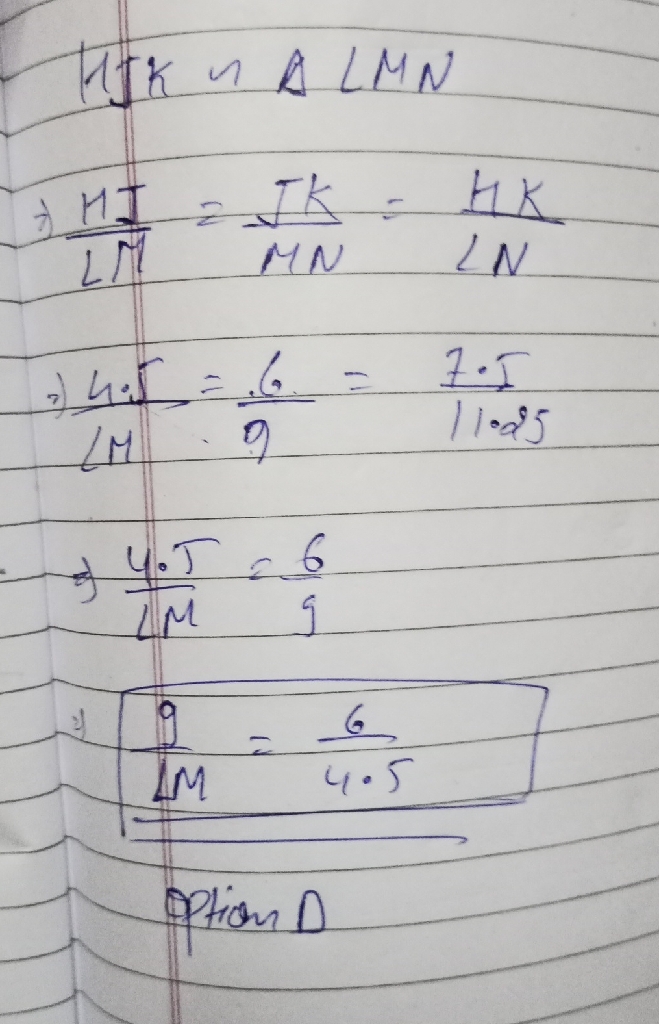 HJK ~ Δ LMN
⇒ HJ/LM = JK/MN = HK/LN
⇒ 4.5/LM = 6/9 = 7.5/11.25
⇒ 4.5/LM = 6/9
⇒ 9/LM = 6/4.5
Option D